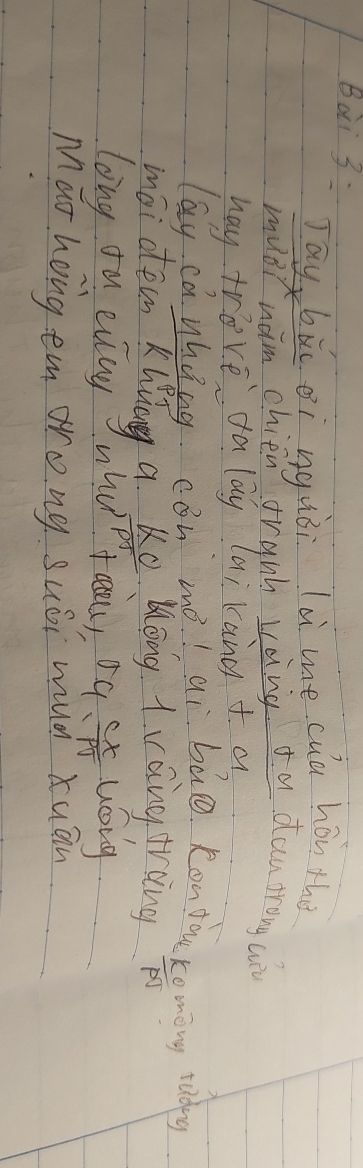 Bài 3:
Tây bắc ơi người là mẹ của hồn thơ
mười năm chiến tranh vàng ta đau trong lửa
nay trở về ta lấy lại vàng ta
Lấy cả những cơn mơ ai bảo con tàu ko mộng tưởng
PT
mỗi đêm khuya ko uống 1 vầng trăng
PT
lòng ta cũng như tàu, ta cx uống
PT
PT
Mặt hồng em trong suối mùa xuân